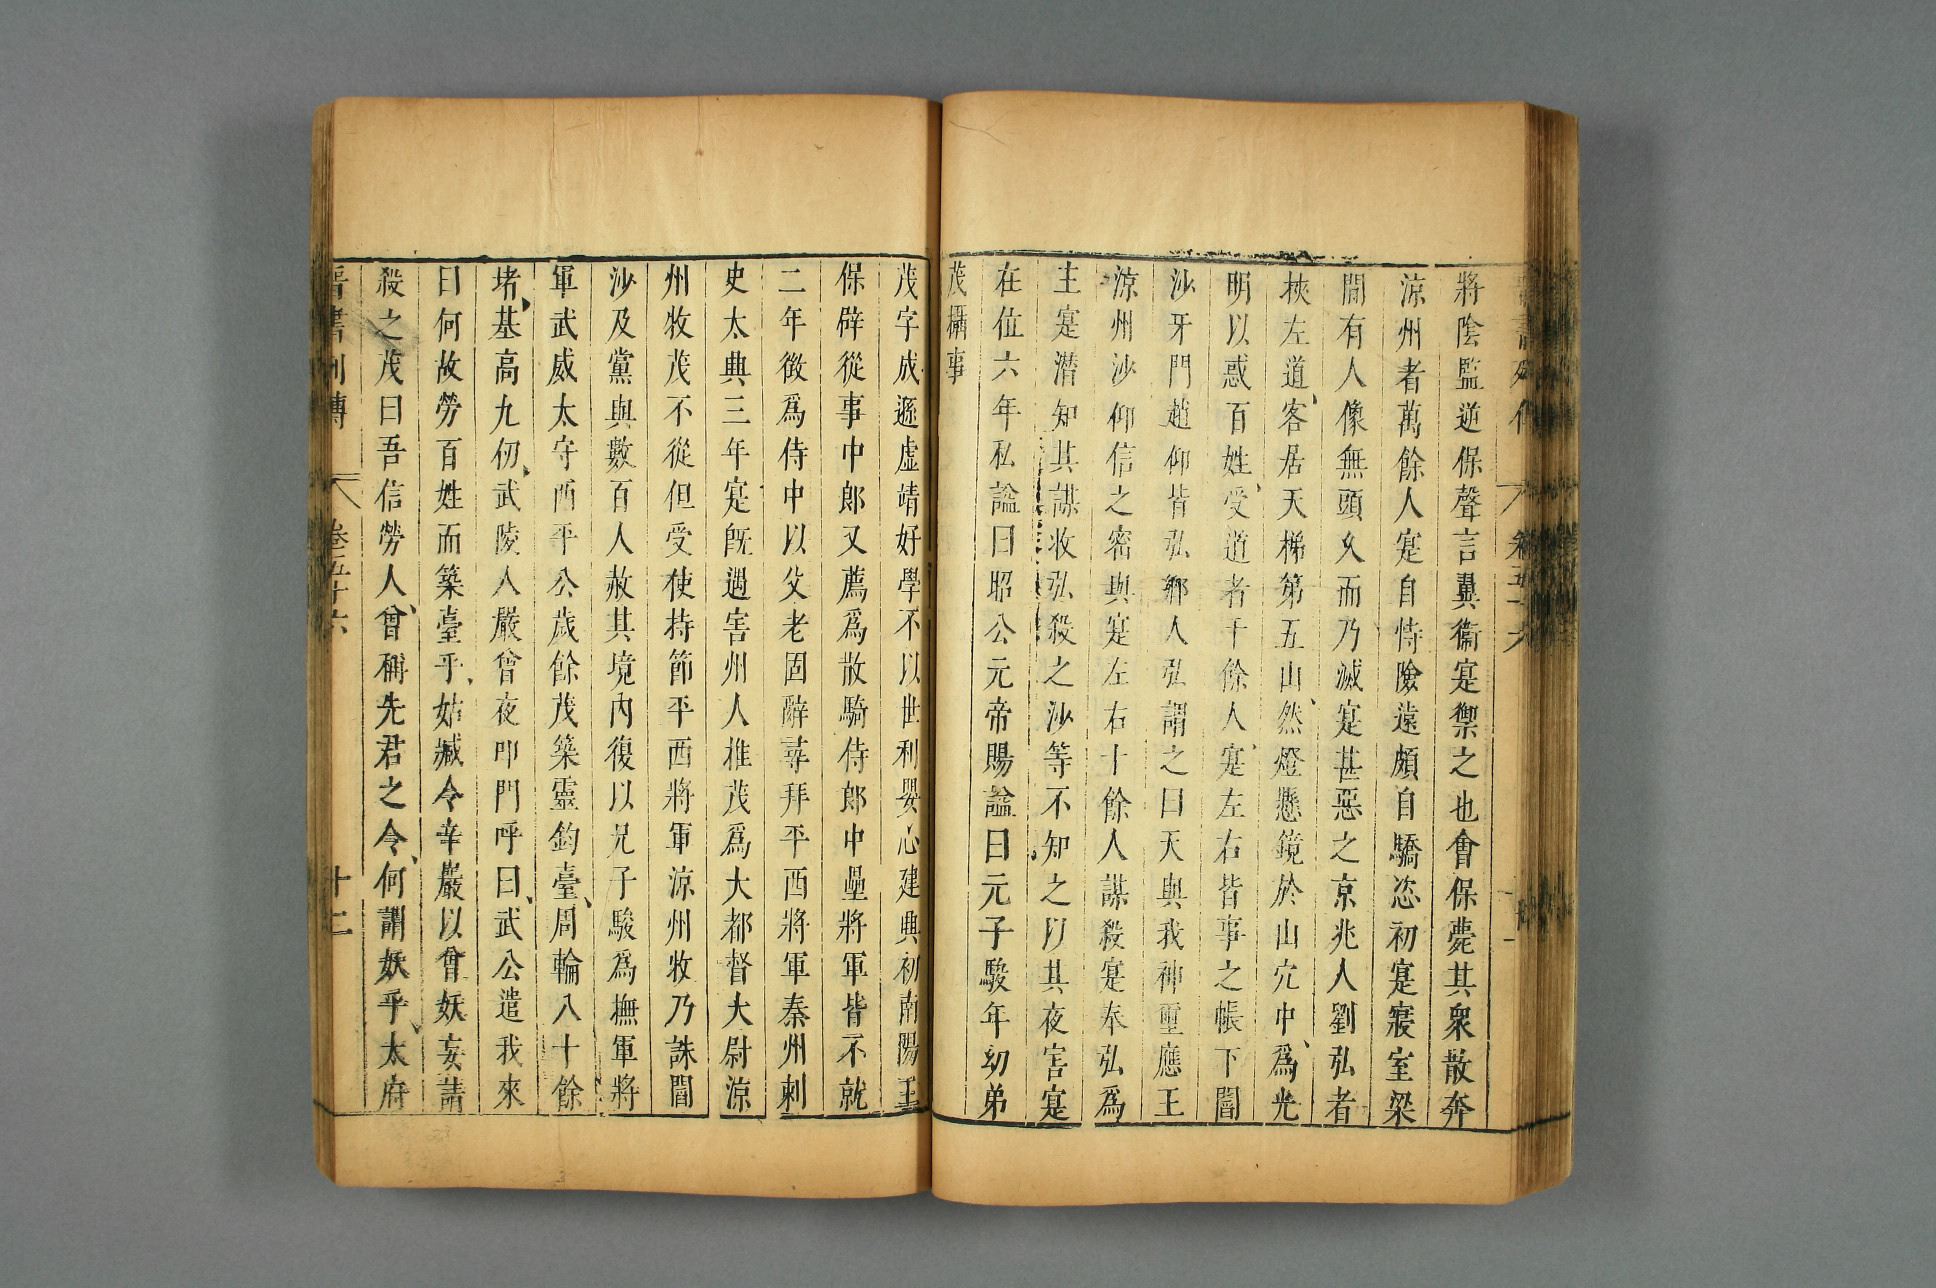 將陰監逆保聲言翼衞寔禦之也會保薨其衆散奔
涼州者萬餘人寔自恃險遠頗自驕恣初寔寢室梁
間有人像無頭久而乃滅寔甚惡之京兆人劉弘者
挾左道客居天梯第五山然燈懸鏡於山穴中爲光
明以惑百姓受道者千餘人寔左右皆事之帳下閻
沙牙門趙仰皆弘鄉人弘謂之曰天與我神璽應王
涼州沙仰信之密與寔左右十餘人謀殺寔奉弘爲
主寔潜知其謀收弘殺之沙等不知之以其夜害寔
在位六年私諡曰昭公元帝賜諡曰元子駿年幼弟
茂攝事
茂字成遜虛靖好學不以世利嬰心建興初南陽王
保辟從事中郎又薦爲散騎侍郎中壘將軍皆不就
二年徵爲侍中以父老固辭尋拜平西將軍秦州刺
史太興三年寔旣遇害州人推茂爲大都督大尉涼
州牧茂不從但受使持節平西將軍涼州牧乃誅閻
沙及黨與數百人赦其境內復以兄子駿爲撫軍將
軍武威太守西平公歲餘茂築靈鈞臺周輪八十餘
堵基高九仞武陵人嚴曾夜叩門呼曰武公遣我來
曰何故勞百姓而築臺乎姑臧令辛巖以曾妖妄請
殺之茂曰吾信勞人曾稱先君之令何謂妖乎太府
晉書列傳 卷五十六 十二